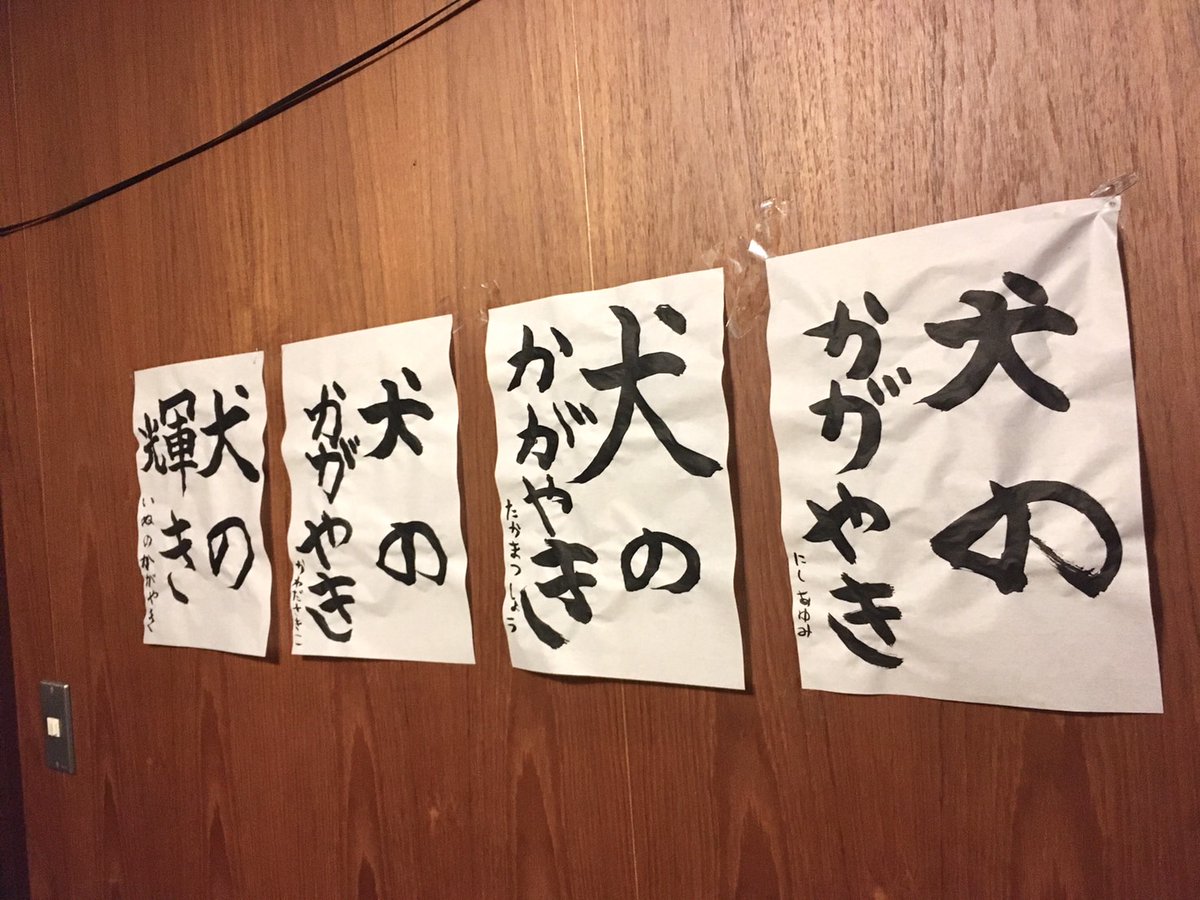 犬の
かがやき
にしあゆみ
犬の
かがやき
たかまつしょう
犬の
かがやき
かわださきこ
犬の
輝き
いぬのかがやき